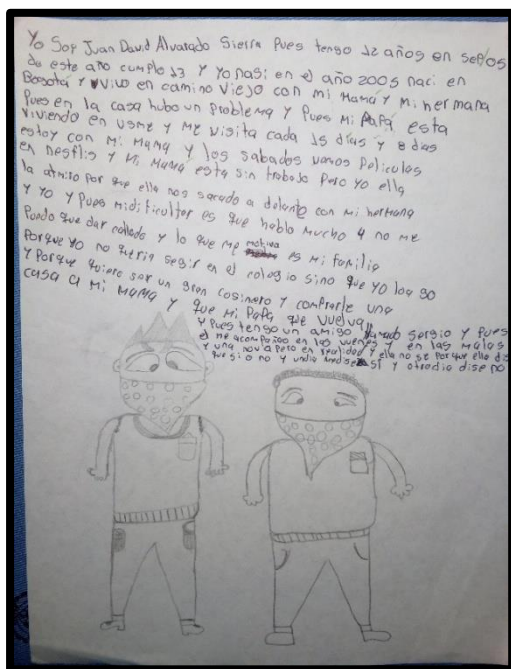 Yo Soy Juan David Alvarado Sierra Pues tengo 12 años en
de este año cumplo 13 y Yo nasi en el año 2005 naci en
Bogotá y vivo en camino Viejo con mi Mamá y Mi hermana
Pues en la casa hubo un problema y Pues Mi PaPá esta
Viviendo en usme y Me Visita cada 15 días y 8 dias
estoy con Mi Mamá y los sabados vamos Peliculas
en nesflis y Mi Mamá esta sin trabajo Pero yo ella
la admiro Por que ella nos sacado a delante con Mi hermana
y Yo y Pues mi dificultor es que hablo Mucho y no me
Puedo que dar callado y lo que me motiva es Mi familia
Porque Yo no queria segir en el colegio sino que Yo lo ago
y Porque quiero ser un gran cosinero y comprarle una
casa a Mi Mamá y que Mi PaPá que Vuelva
y Pues tengo un amigo llamado sergio y Pues
el me acompañado en las vuenas y en las Malas
y una novia Pero en realidad y ella no se Porque ella dis
que si o no y un dia me dise si y otro dia dise no